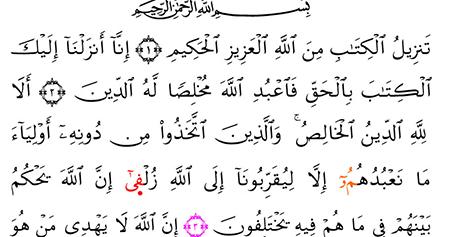 بِسْمِ ٱللَّهِ ٱلرَّحْمَٰنِ ٱلرَّحِيمِ
تَنزِيلُ ٱلْكِتَٰبِ مِنَ ٱللَّهِ ٱلْعَزِيزِ ٱلْحَكِيمِ ﴿١﴾ إِنَّآ أَنزَلْنَآ إِلَيْكَ
ٱلْكِتَٰبَ بِٱلْحَقِّ فَٱعْبُدِ ٱللَّهَ مُخْلِصًا لَّهُ ٱلدِّينَ ﴿٢﴾ أَلَا
لِلَّهِ ٱلدِّينُ ٱلْخَالِصُ ۚ وَٱلَّذِينَ ٱتَّخَذُوا۟ مِن دُونِهِۦٓ أَوْلِيَآءَ
مَا نَعْبُدُهُمُۥٓ إِلَّا لِيُقَرِّبُونَآ إِلَى ٱللَّهِ زُلْفِىٰٓ إِنَّ ٱللَّهَ يَحْكُمُ
بَيْنَهُمْ فِى مَا هُمْ فِيهِ يَخْتَلِفُونَ ﴿٣﴾ إِنَّ ٱللَّهَ لَا يَهْدِى مَنْ هُوَ